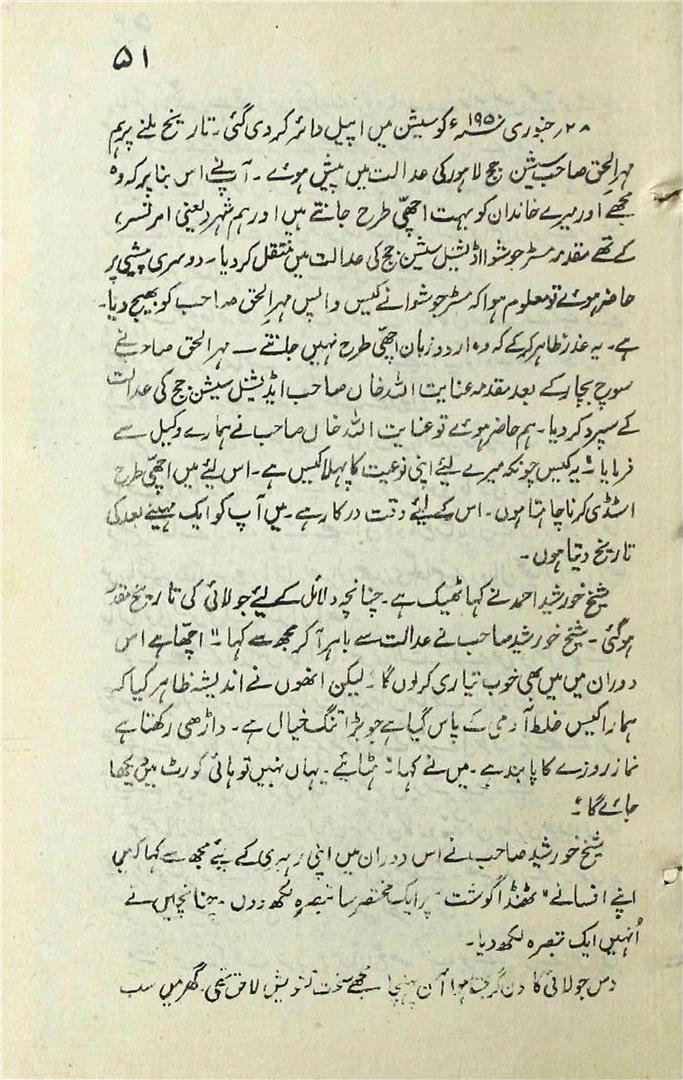 ۵۱
۲۸؍ جنوری ۱۹۵۰ء کو سیشن میں اپیل دائر کر دی گئی۔ تاریخ ملنے پر ہم
مہر الحق صاحب سیشن جج لاہور کی عدالت میں پیش ہوئے۔ آپ نے اس بنا پر کہ وہ
مجھے اور میرے خاندان کو بہت اچھی طرح جانتے ہیں اور ہم شہر (یعنی امرتسر،
کے تھے مقدمہ مسٹر جوشوا اڈیشنل سیشن جج کی عدالت میں منتقل کر دیا۔ دوسری پیشی پر
حاضر ہوئے تو معلوم ہوا کہ مسٹر جوشوا نے کیس واپس مہر الحق صاحب کو بھیج دیا۔
ہے۔ یہ عذر ظاہر کر کے کہ وہ اردو زبان اچھی طرح نہیں جانتے — مہر الحق صاحب نے
سوچ بچار کے بعد مقدمہ عنایت اللہ خاں صاحب ایڈیشنل سیشن جج کی عدالت
کے سپرد کر دیا۔ ہم حاضر ہوئے تو عنایت اللہ خاں صاحب نے ہمارے وکیل سے
فرمایا " یہ کیس چونکہ میرے لیئے اپنی نوعیت کا پہلا کیس ہے۔ اس لیئے میں اچھی طرح
اسٹڈی کرنا چاہتا ہوں۔ اس کے لیئے وقت درکار ہے۔ میں آپ کو ایک مہینے بعد کی
تاریخ دیتا ہوں۔
شیخ خورشید احمد نے کہا ٹھیک ہے۔ چنانچہ دلائل کے لیئے جولائی کی تاریخ مقرر
ہو گئی۔ شیخ خورشید صاحب نے عدالت سے باہر آ کر مجھ سے کہا۔ " اچھا ہے اس
دوران میں میں بھی خوب تیاری کر لوں گا" لیکن انھوں نے اندیشہ ظاہر کیا کہ
ہمارا کیس غلط آدمی کے پاس گیا ہے جو بڑا تنگ خیال ہے۔ داڑھی رکھتا ہے
نماز روزے کا پابند ہے۔ میں نے کہا " ہٹائیے۔ یہاں نہیں تو ہائی کورٹ میں دیکھا
جائے گا"
شیخ خورشید صاحب نے اس دوران میں اپنی رہبری کے لیئے مجھ سے کہا کہ میں
اپنے افسانے "ٹھنڈا گوشت" پر ایک مختصر سا تبصرہ لکھ دوں۔ چنانچہ میں نے
اُنہیں ایک تبصرہ لکھ دیا۔
دس جولائی کا دن گرجتا ہوا آن پہنچا مجھے سخت تشویش لاحق تھی۔ گھر میں سب